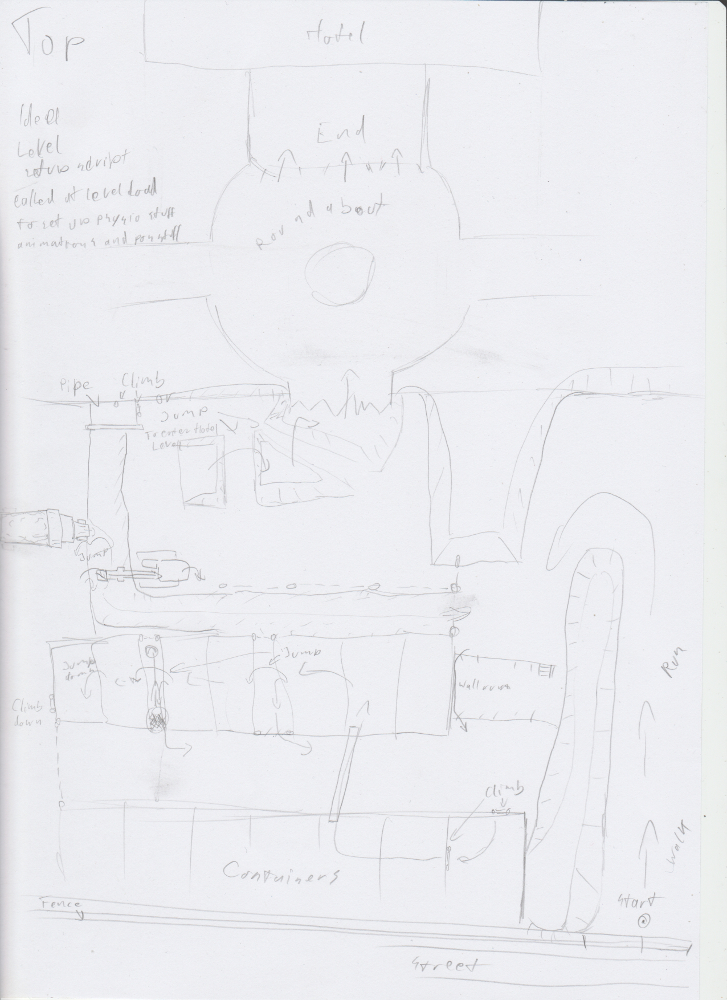 Top
Hotel
Idea
Level
setup script
called at level load
to set up physic stuff
animations and
End
Roundabout
Pipe
Climb
Jump
Level
Jump
Jump
down
Jump
Climb
down
wallrun
Run
Climb
Walk
Containers
Start
Fence
Street